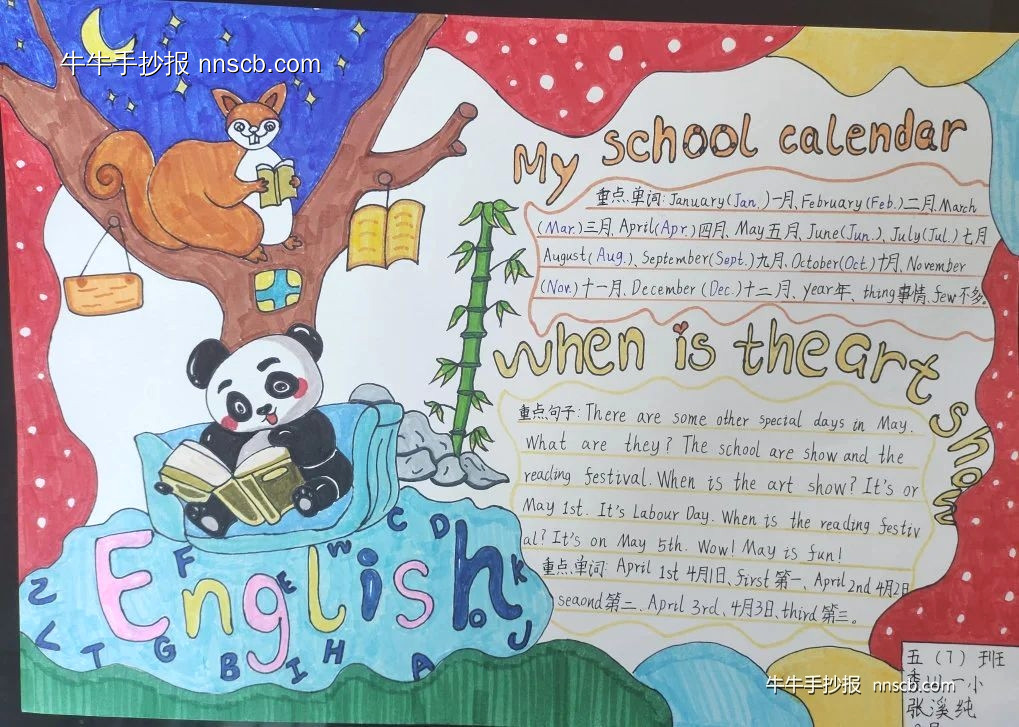 牛牛手抄报 nnscb.com
My school calendar
重点单词: January(Jan.)一月、February(Feb.)二月、March
(Mar.)三月、April(Apr.)四月、May五月、June(Jun.)、July(Jul.)七月
August(Aug.)、September(Sept.)九月、October(Oct.)十月、November
(Nov.)十一月、December(Dec.)十二月、year年、thing事情、few不多。
when is the art show
重点句子: There are some other special days in May.
What are they? The school are show and the
reading festival. When is the art show? It's or
May 1st. It's Labour Day. When is the reading festiv
al? It's on May 5th. Wow! May is fun!
重点单词: April 1st 4月1日、first 第一、April 2nd 4月2日
seaond第二、April 3rd、4月3日、third 第三。
English
F
W
C
D
E
K
Z
L
T
G
B
I
H
A
O
J
五（7）班
香山一小
张溪纯
牛牛手抄报 nnscb.com